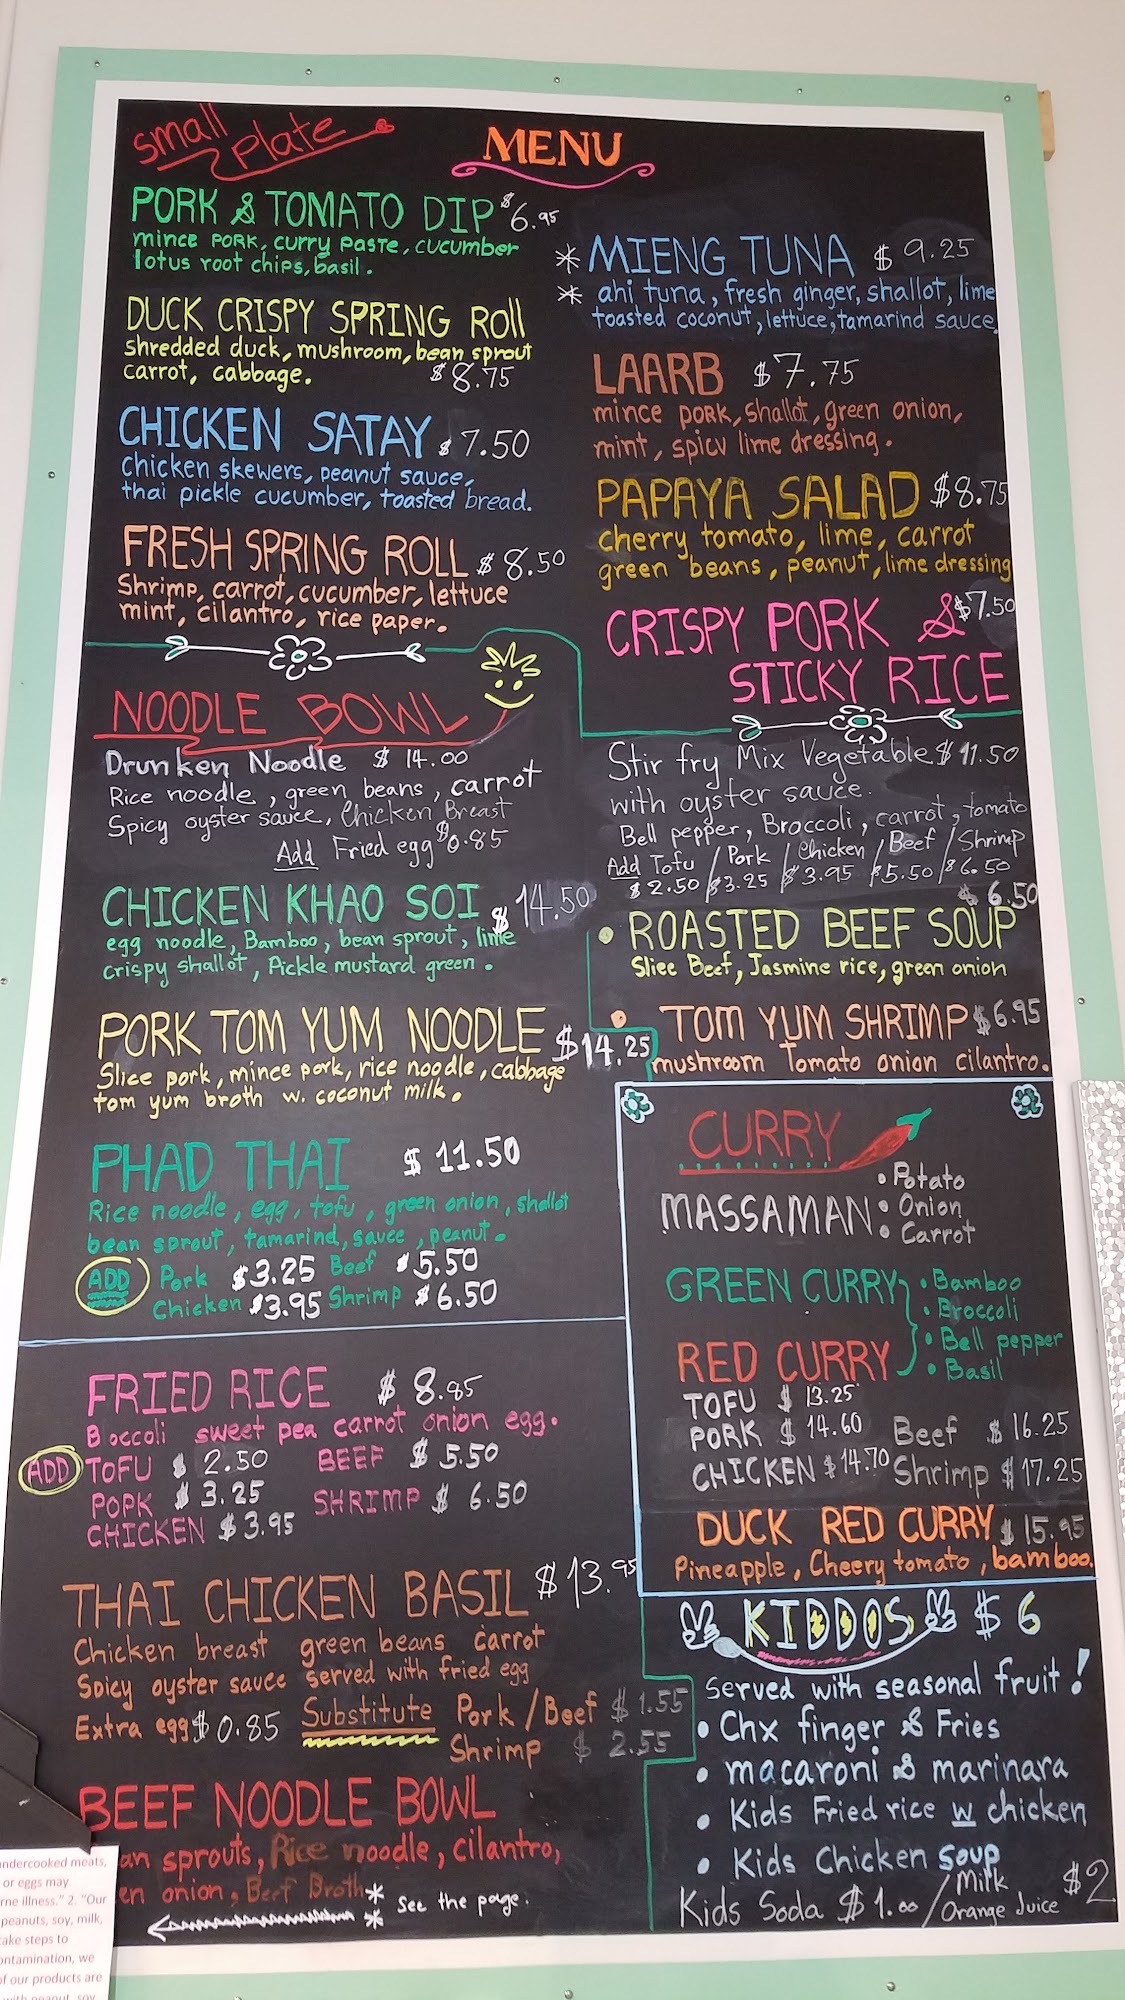 Small Plate
MENU
PORK & TOMATO DIP $6.95
mince PORK, curry paste, cucumber
lotus root chips, basil.
DUCK CRISPY SPRING Roll
shredded duck, mushroom, bean sprout
carrot, cabbage. $8.75
CHICKEN SATAY $7.50
Chicken skewers, peanut sauce,
thai pickle cucumber, toasted bread.
FRESH SPRING ROLL $8.50
Shrimp, carrot, cucumber, lettuce
mint, cilantro, rice paper.
* MIENG TUNA $9.25
* ahi tuna, fresh ginger, shallot, lime
toasted coconut, lettuce, tamarind sauce.
LAARB $7.75
mince pork, shallot, green onion,
mint, spicy lime dressing.
PAPAYA SALAD $8.75
cherry tomato, lime, carrot
green beans, peanut, lime dressing
CRISPY PORK & $7.50
STICKY RICE
NOODLE BOWL
Drunken Noodle $14.00
Rice noodle, green beans, carrot
Spicy oyster sauce, Chicken Breast
Add Fried egg $0.85
CHICKEN KHAO SOI $14.50
egg noodle, Bamboo, bean sprout, lime
crispy shallot, Pickle mustard green.
PORK TOM YUM NOODLE $14.25
Slice pork, mince pork, rice noodle, cabbage
tom yum broth w. coconut milk.
PHAD THAI $11.50
Rice noodle, egg, tofu, green onion, shallot
bean sprout, tamarind, sauce, peanut.
ADD Pork $3.25 Beef $5.50
Chicken $3.95 Shrimp $6.50
Stir fry Mix Vegetable $11.50
with oyster sauce.
Bell pepper, Broccoli, carrot, tomato
Add Tofu / Pork / Chicken / Beef / Shrimp
$2.50 / $3.25 / $3.95 / $5.50 / $6.50
$6.50
• ROASTED BEEF SOUP
Slice Beef, Jasmine rice, green onion
• TOM YUM SHRIMP $6.95
mushroom Tomato onion cilantro.
CURRY
MASSAMAN • Potato
• Onion
• Carrot
GREEN CURRY • Bamboo
• Broccoli
• Bell pepper
RED CURRY • Basil
TOFU $13.25
PORK $14.60 Beef $16.25
CHICKEN $14.70 Shrimp $17.25
DUCK RED CURRY $15.95
Pineapple, Cheery tomato, bamboo.
FRIED RICE $8.85
Broccoli sweet pea carrot onion egg.
ADD TOFU $2.50 BEEF $5.50
PORK $3.25 SHRIMP $6.50
CHICKEN $3.95
THAI CHICKEN BASIL $13.95
Chicken breast green beans carrot
Spicy oyster sauce served with fried egg
Extra egg $0.85 Substitute Pork/Beef $1.55
Shrimp $2.55
BEEF NOODLE BOWL
an sprouts, Rice noodle, cilantro,
en onion, Beef Broth
* See the page.
*
KIDDOS $6
Served with seasonal fruit!
• Chx finger & Fries
• macaroni & marinara
• Kids Fried rice w chicken
• Kids Chicken soup
Kids Soda $1.00 / Milk Orange Juice $2
ndercooked meats,
or eggs may
rne illness." 2. "Our
peanuts, soy, milk,
ake steps to
ontamination, we
of our products are
with peanut, soy